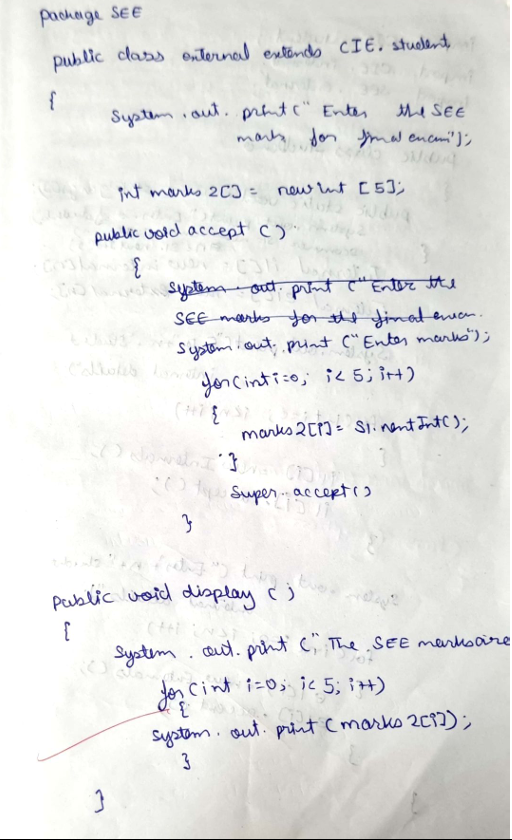 package SEE
public class external extends CIE.student
{
System.out.print(" Enter the SEE
marks for final exam");
int marks2[] = new int [5];
public void accept ()
{
System.out.print ("Enter the
SEE marks for the final exam.
System.out.print ("Enter marks");
for(int i=0; i<5; i++)
{
marks2[i] = S1.nextInt();
}
Super.accept()
}
public void display ()
{
System.out.print (" The SEE marks are
for(int i=0; i<5; i++)
{
System.out.print (marks2[i]);
}
}